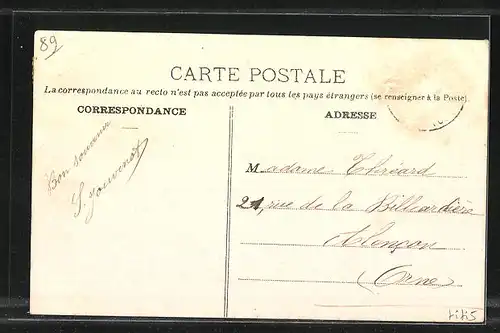 89
CARTE POSTALE
La correspondance au recto n'est pas acceptée par tous les pays étrangers (se renseigner à la Poste).
CORRESPONDANCE
Bon souvenir
S. Jouvenot
ADRESSE
Madame Thiéard
21, rue de la Billeardière
Alençon
(Orne)